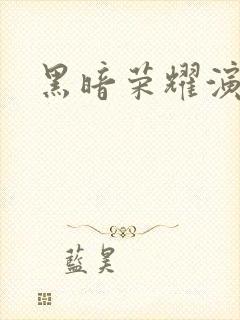 黑暗荣耀演
藍昊